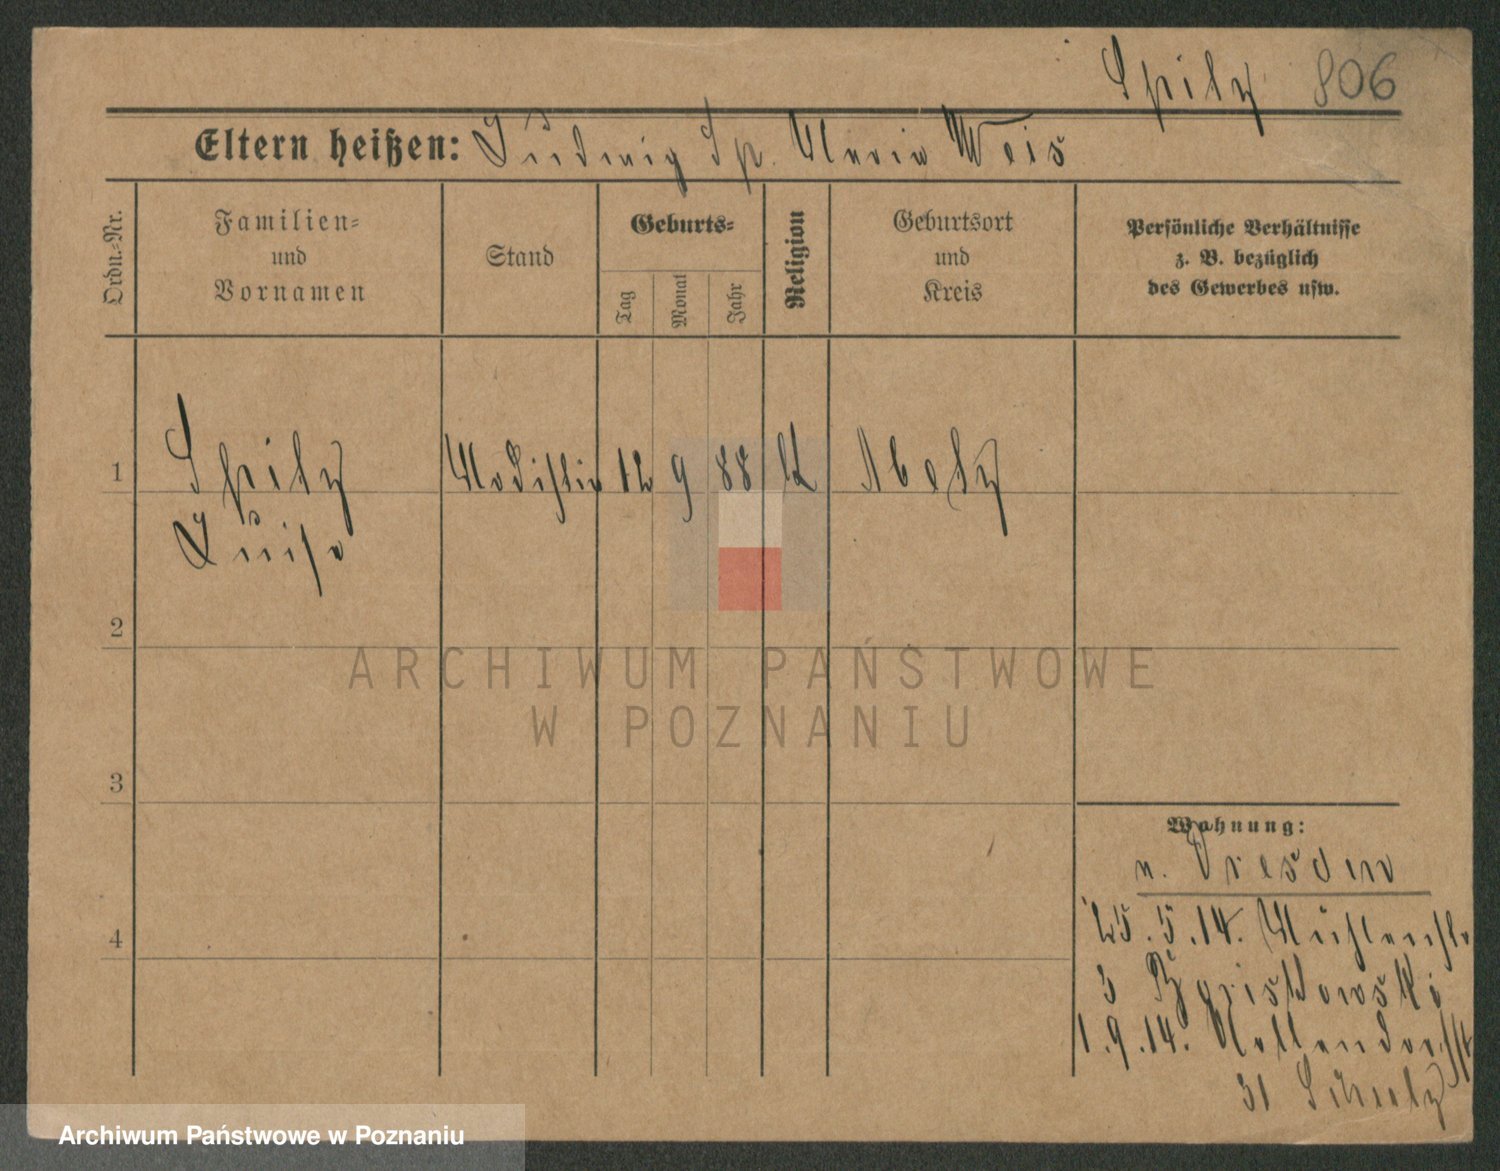 Spitz 806
Eltern heißen: Ludwig Sp. Maria Weis
Ordn.-Nr.
Familien-
und
Vornamen
Stand
Geburts-
Tag
Monat
Jahr
Religion
Geburtsort
und
Kreis
Persönliche Verhältnisse
z. B. bezüglich
des Gewerbes usw.
1 Spitz Modistin 12 9 88 Abetz
Luise
2
3
4
ARCHIWUM PAŃSTWOWE
W POZNANIU
Wohnung:
n. Dresden
25.5.14. Mühlenstr
3
1.9.14. Nollendorfstr
31 Schulz
Archiwum Państwowe w Poznaniu